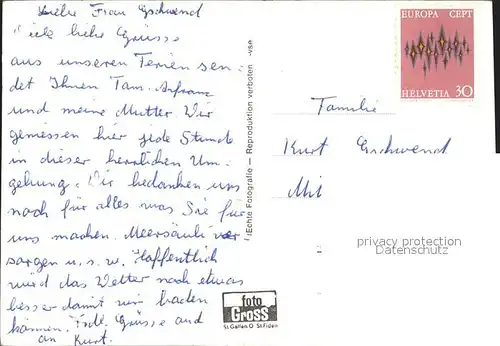 Liebe Frau Gschwend
Viele liebe Grüsse
aus unseren Ferien sen-
det Ihnen Fam.
und meine Mutter. Wir
geniessen hier jede Stunde
in dieser herrlichen Um-
gebung. Wir bedanken uns
noch für alles was Sie für
uns machen. Meersäuli ver
sorgen u. s. w. Hoffentlich
wird das Wetter noch etwas
besser damit wir baden
können. Frdl. Grüsse and
an Kurt.
(Echte Fotografie — Reproduktion verboten -vse
foto
Gross
St. Gallen O St. Fiden
EUROPA CEPT
HELVETIA 30
Familie
Kurt Gschwend
privacy protection
Datenschutz